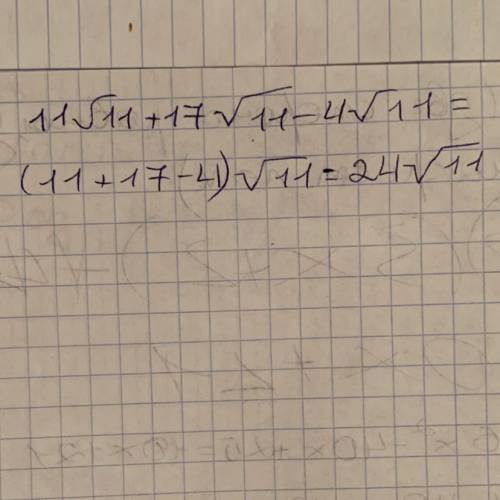 11√11+17√11-4√11=
(11+17-4)√11=24√11